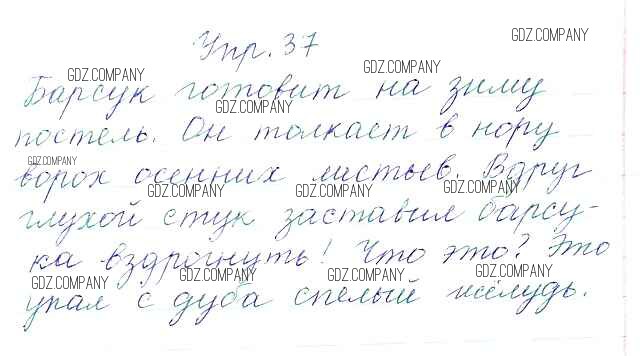 Упр. 37
GDZ.COMPANY
GDZ.COMPANY
GDZ.COMPANY
Барсук готовит на зиму
GDZ.COMPANY
постель. Он толкает в нору
GDZ.COMPANY
ворох осенних листьев. Вдруг
GDZ.COMPANY GDZ.COMPANY GDZ.COMPANY
глухой стук заставил барсу-
ка вздрогнуть! Что это? Это
GDZ.COMPANY GDZ.COMPANY GDZ.COMPANY GDZ.COMPANY
упал с дуба спелый жёлудь.